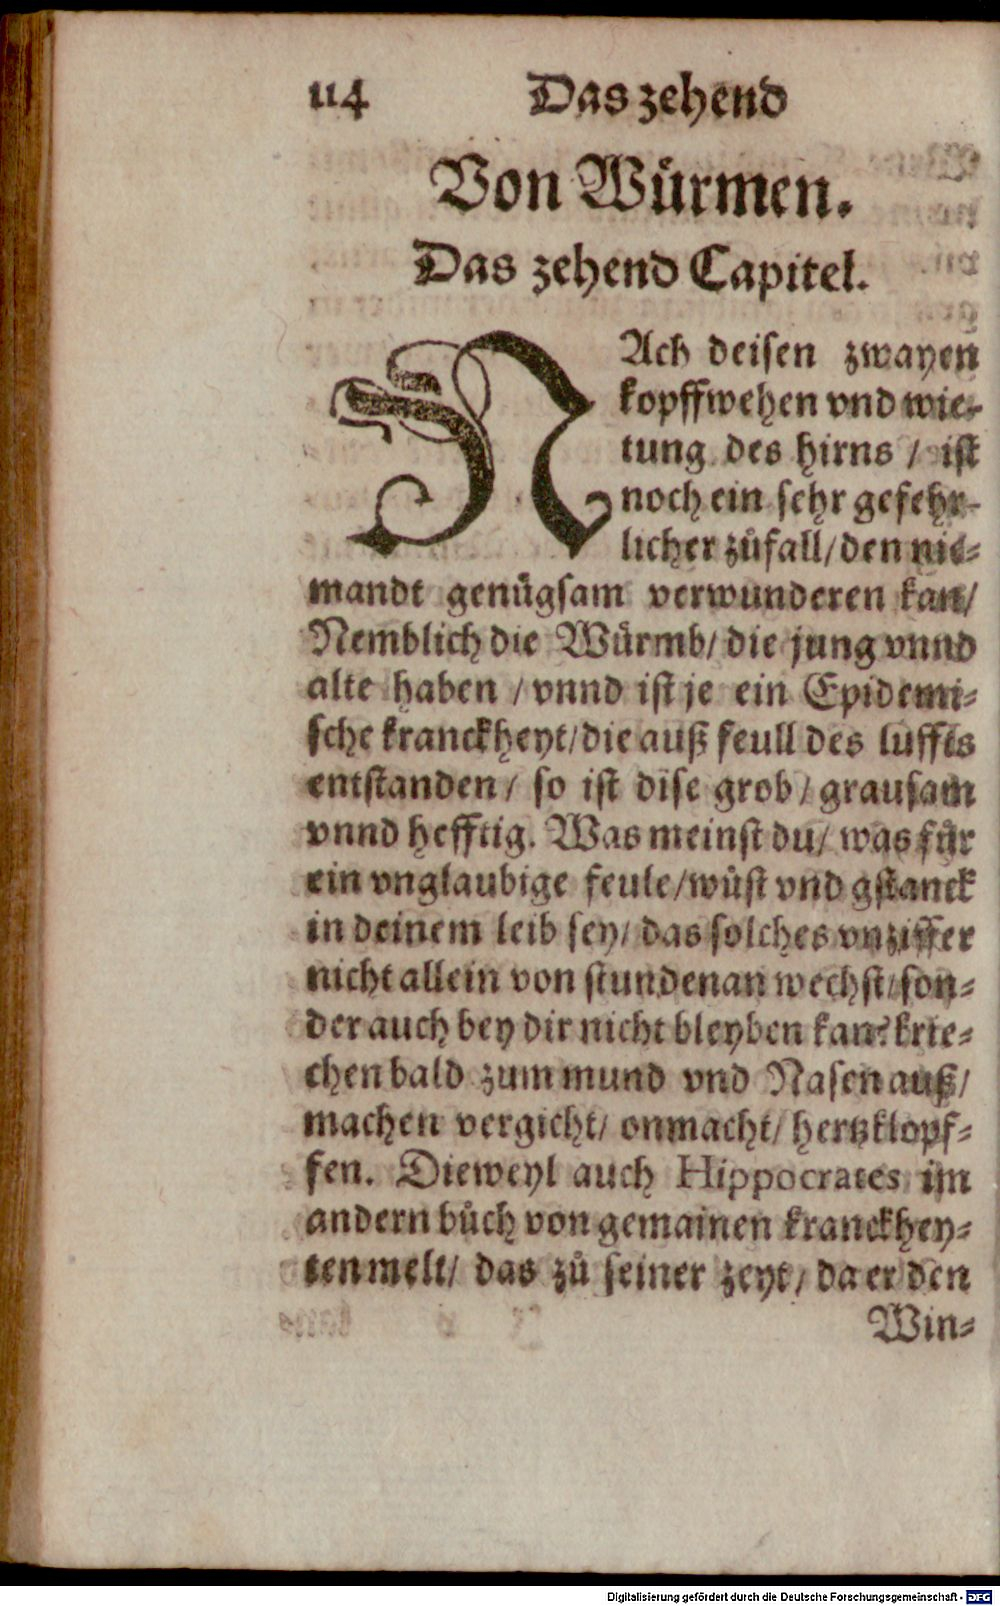 114 Das zehend
Von Würmen.
Das zehend Capitel.
NAch deisen zwayen
kopffwehen vnd wie-
tung des hirns / ist
noch ein sehr gefehr-
licher zůfall/ den nie-
mandt genůgsam verwunderen kan/
Nemblich die Würmb/ die jung vnnd
alte haben / vnnd ist je ein Epidemi-
sche kranckheyt/ die auß feull des luffts
entstanden / so ist dise grob / grausam
vnnd hefftig. Was meinst du / was für
ein vnglaubige feule/ wůst vnd gstanck
in deinem leib sey/ das solches vnziffer
nicht allein von stundenan wechst/ son-
der auch bey dir nicht bleyben kan? krie-
chen bald zum mund vnd Nasen auß/
machen vergicht/ onmacht/ hertzklopf-
fen. Dieweyl auch Hippocrates im
andern bůch von gemainen kranckhey-
ten melt/ das zů seiner zeyt, da er den
Win-
Digitalisierung gefördert durch die Deutsche Forschungsgemeinschaft - DFG